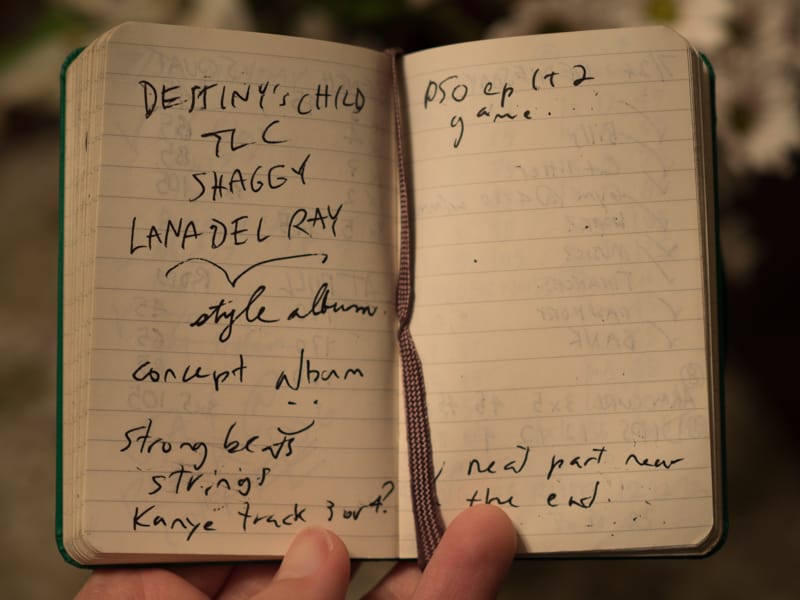 DESTINY'S CHILD
TLC
SHAGGY
LANA DEL RAY
style album.
concept album
strong beats
strings
Kanye track 3 or 4?
PSO ep 1+2
game...
neat part near
the end.